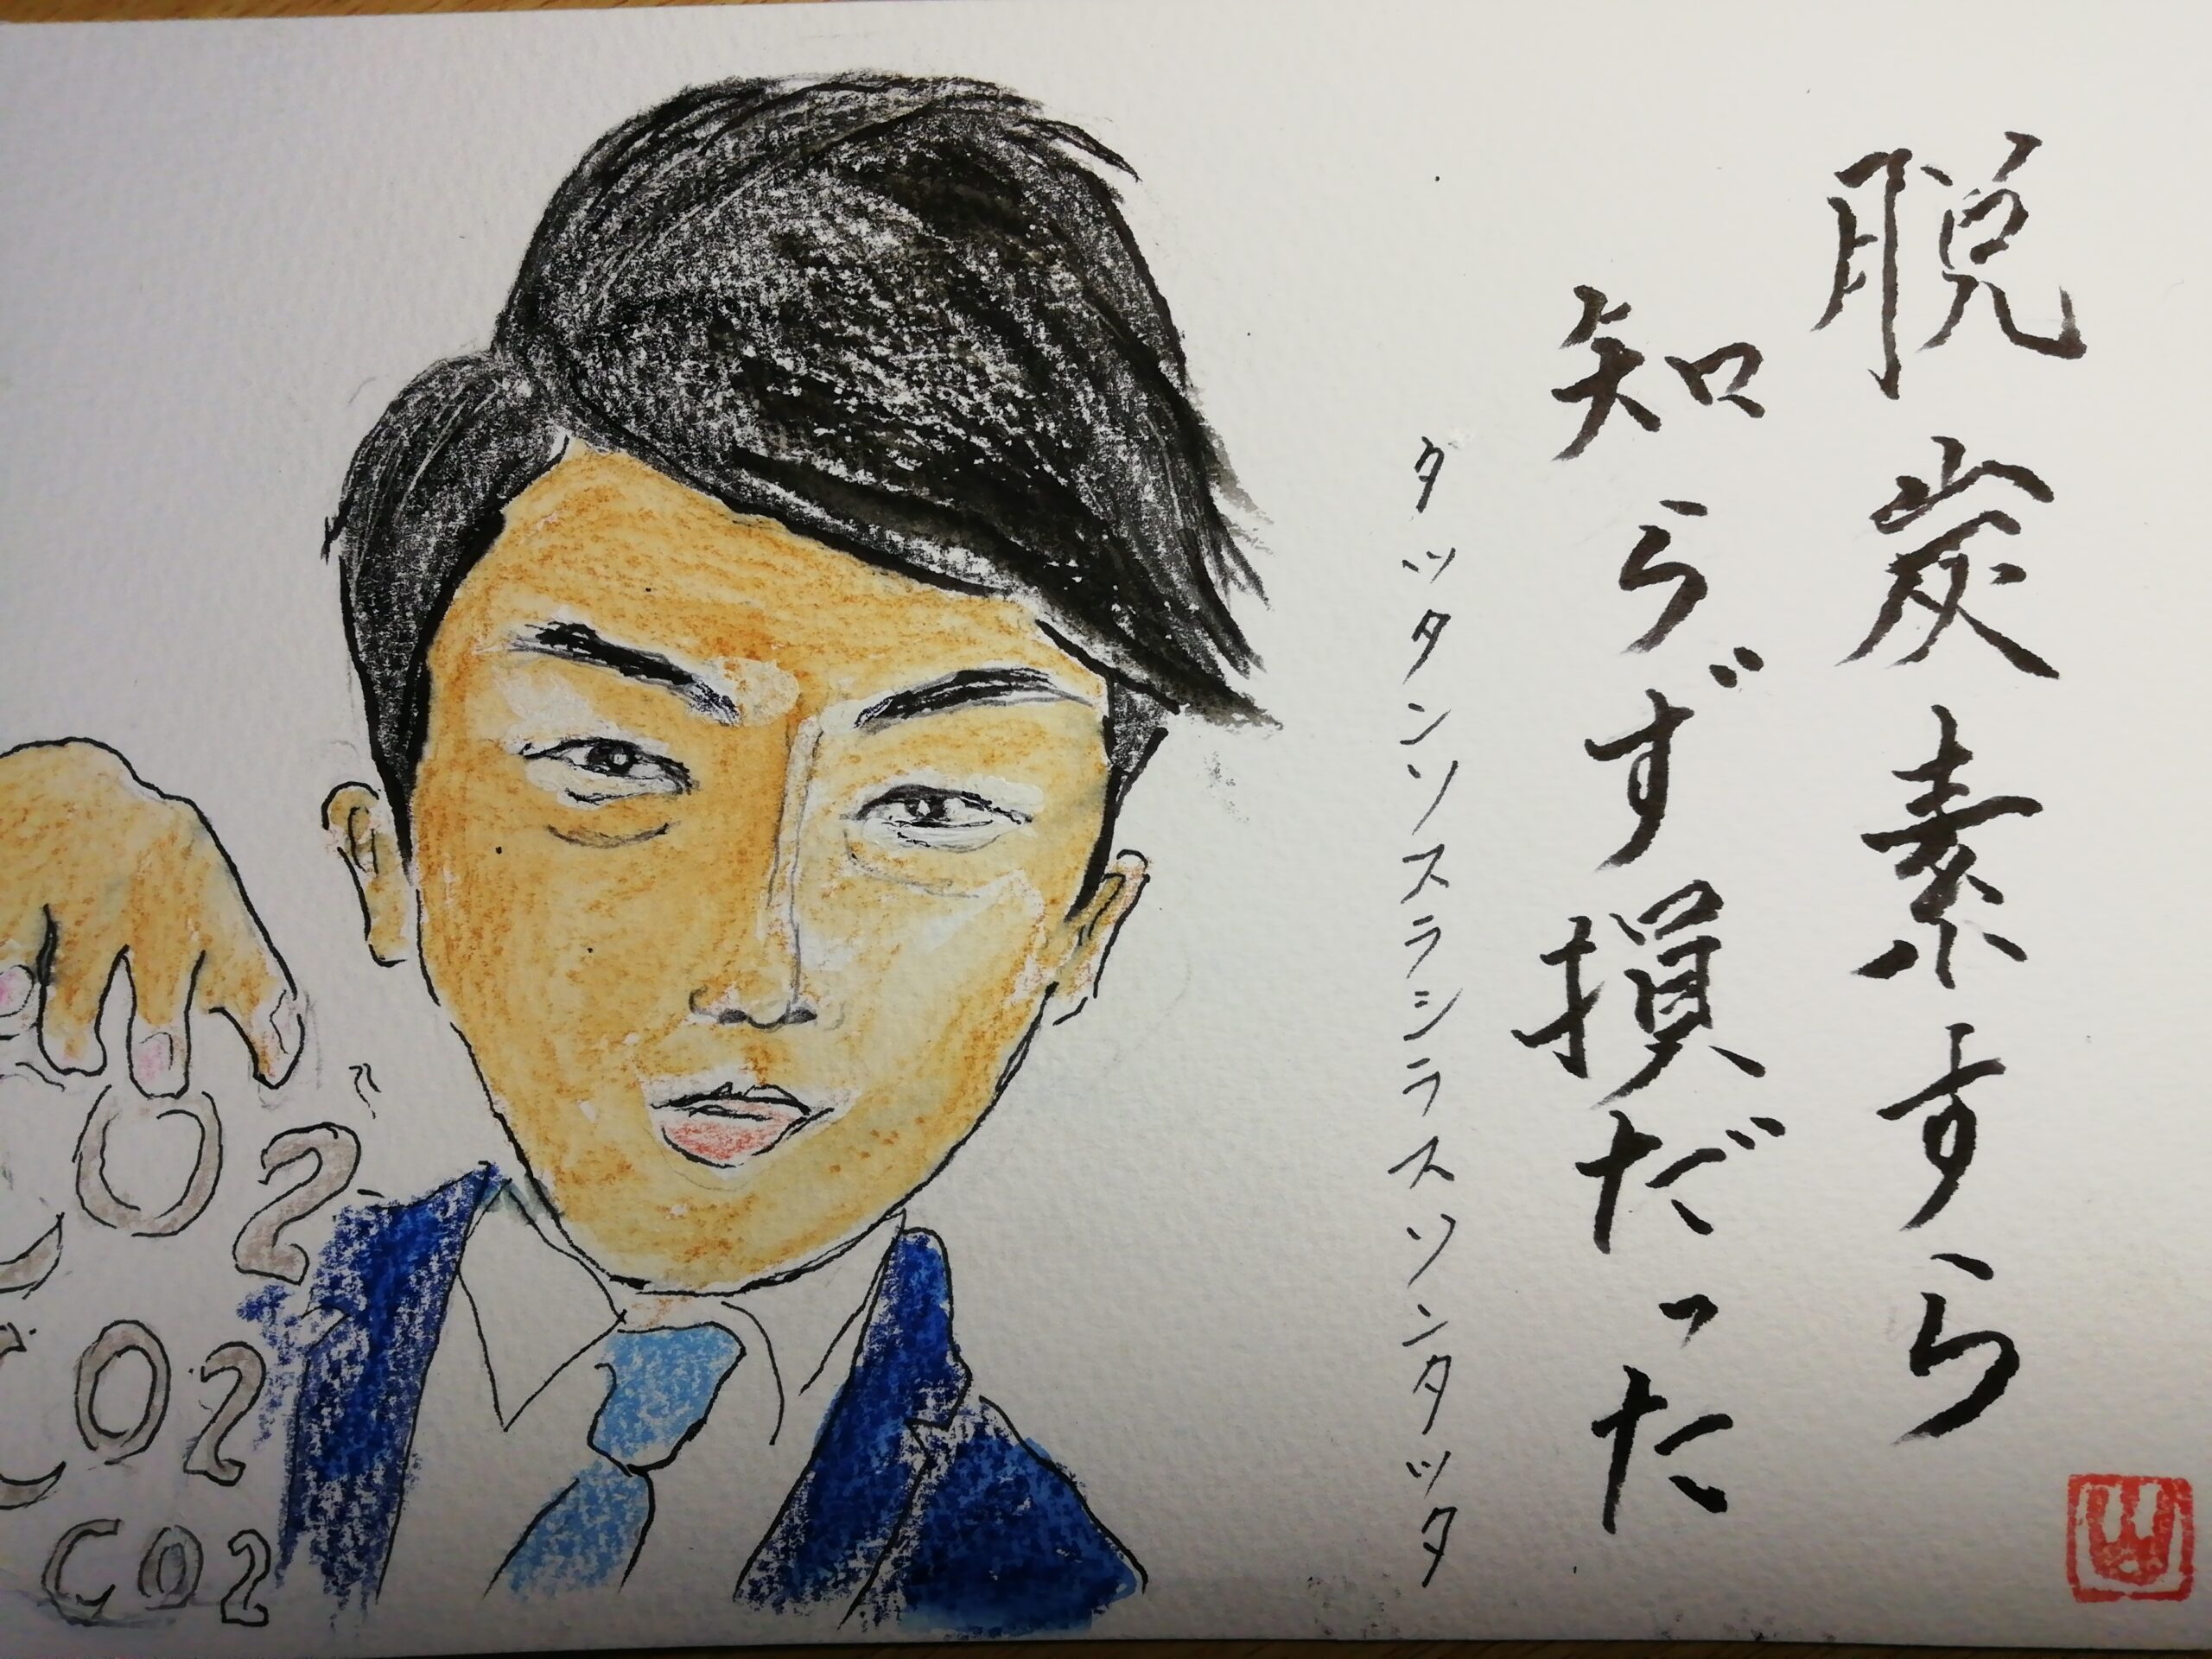 脱炭素すら
知らず損だった
タツタンソスラシラスソンタツタ
CO2
CO2
CO2